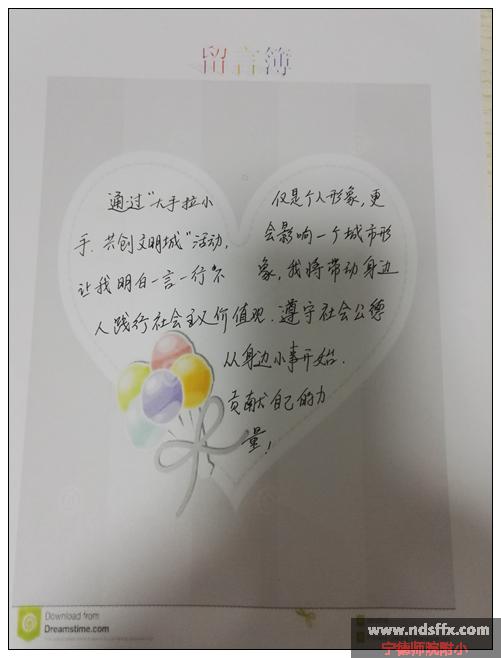 留言簿
通过“大手拉小 仅是个人形象,更
手、共创文明城”活动, 会影响一个城市形
让我明白一言一行不 象,我将带动身边
人践行社会主义价值观、遵守社会公德
从身边小事开始.
贡献自己的力
量!
Download from
Dreamstime.com
www.ndsffx.com
宁德师院附小